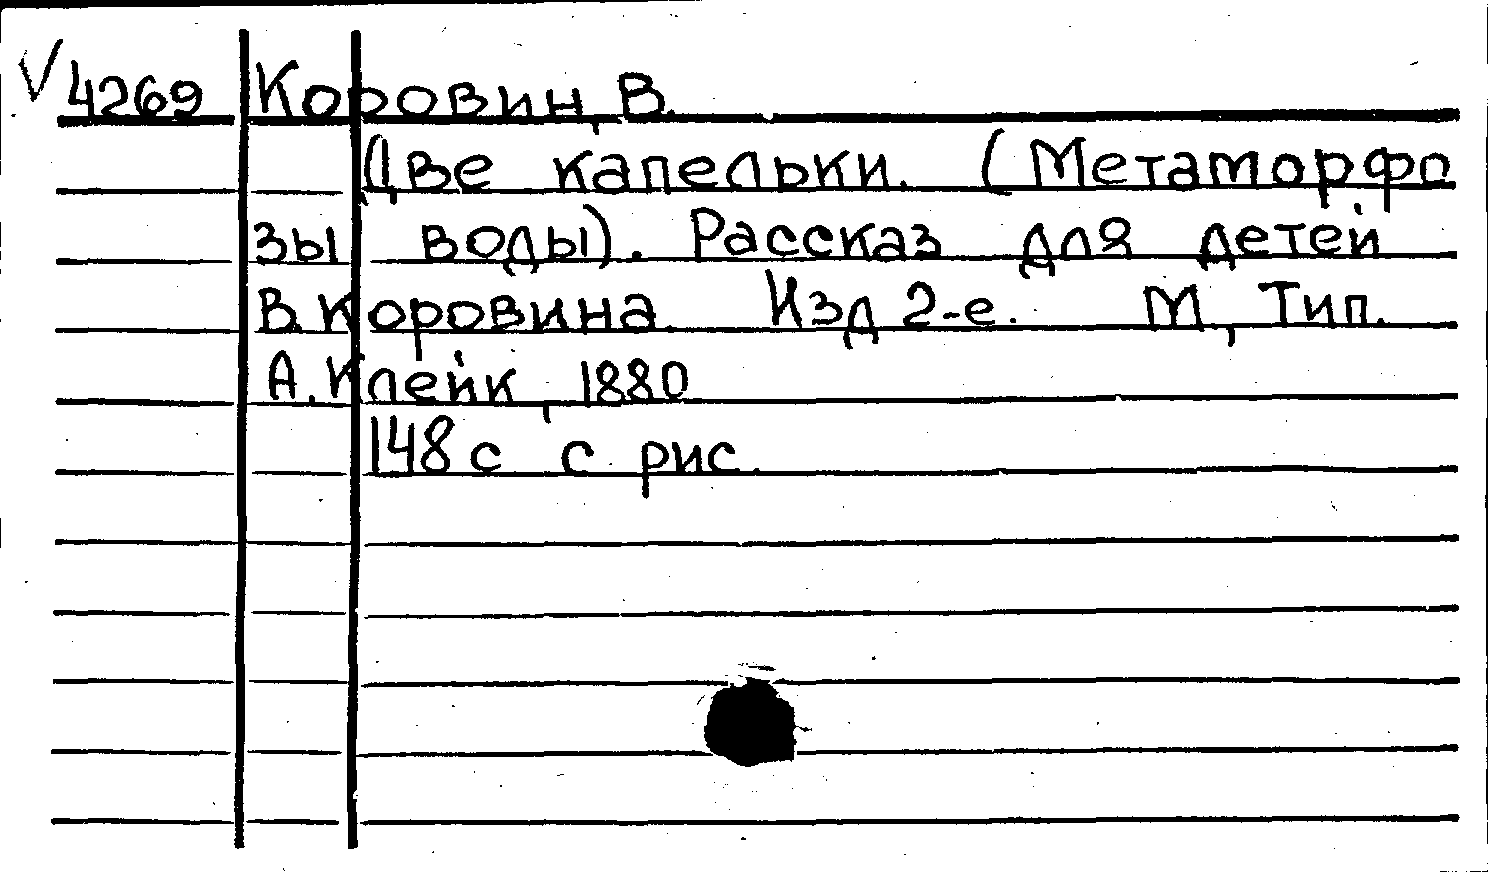 √ 4269 Коровин, В.
Две капельки. (Метаморфо
зы воды). Рассказ для детей
В. Коровина. Изд 2-е. М, Тип.
А. Клейн, 1880
148 с с рис.